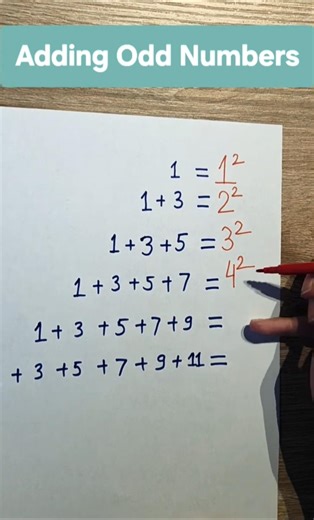 Adding Odd Numbers
1 = 1²
1 + 3 = 2²
1 + 3 + 5 = 3²
1 + 3 + 5 + 7 = 4²
1 + 3 + 5 + 7 + 9 =
+ 3 + 5 + 7 + 9 + 11 =